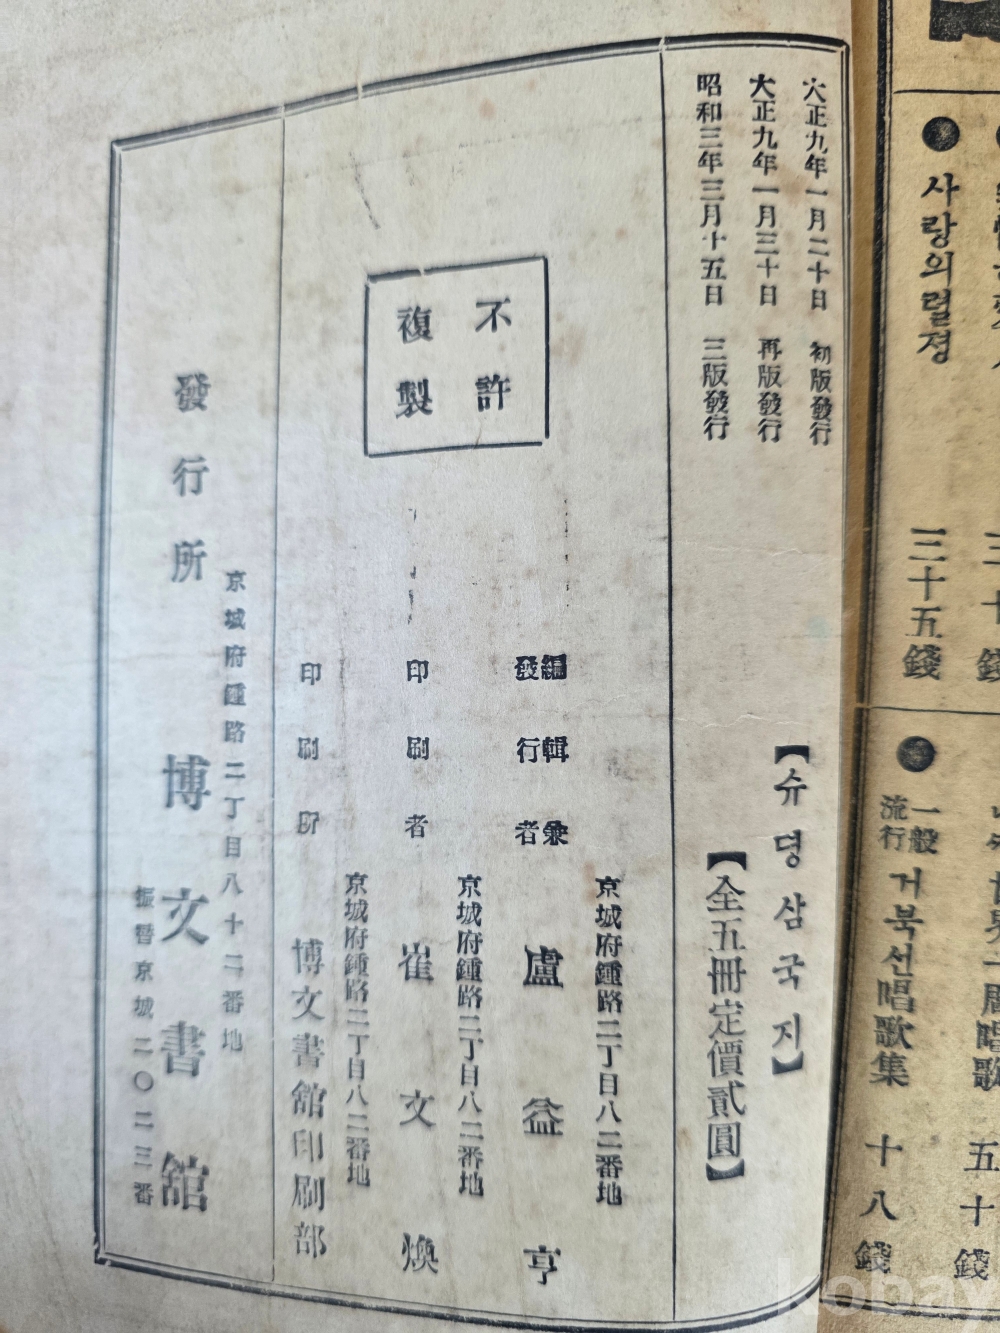 大正九年一月二十日 初版發行
大正九年一月三十日 再版發行
昭和三年三月十五日 三版發行
【슈뎡삼국지】
【全五冊定價貳圓】
不許
複製
京城府鍾路二丁目八二番地
編輯兼
發行者 盧益亨
京城府鍾路二丁目八二番地
印刷者 崔文煥
京城府鍾路二丁目八二番地
印刷所 博文書舘印刷部
京城府鍾路二丁目八十二番地
發行所 博文書舘
振替京城二〇二三番
五十錢
● 사랑의렬졍 三十五錢
● 一般
流行 거북선唱歌集 十八錢
kobay